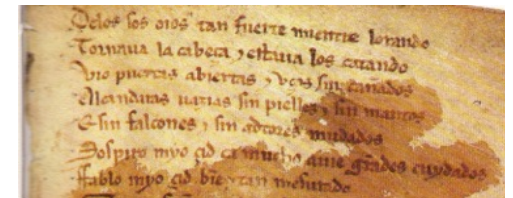 Delos sos oios tan fuerte mientre lorando
Tornaua la cabeça ⁊ estaua los catando
Vio puertas abiertas ⁊ vços sin cañados
Alcandaras uazias sin pielles ⁊ sin mantos
E sin falcones ⁊ sin adtores mudados
Sospiro myo çid ca mucho auie grãdes cuydados
Ffablo myo çid bie⁊ tan mesurado